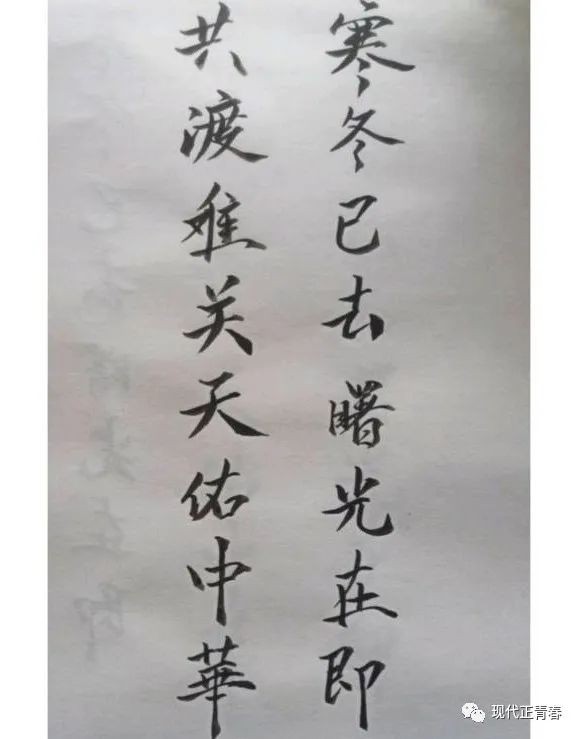 寒冬已去曙光在即
共渡难关天佑中華
现代正青春